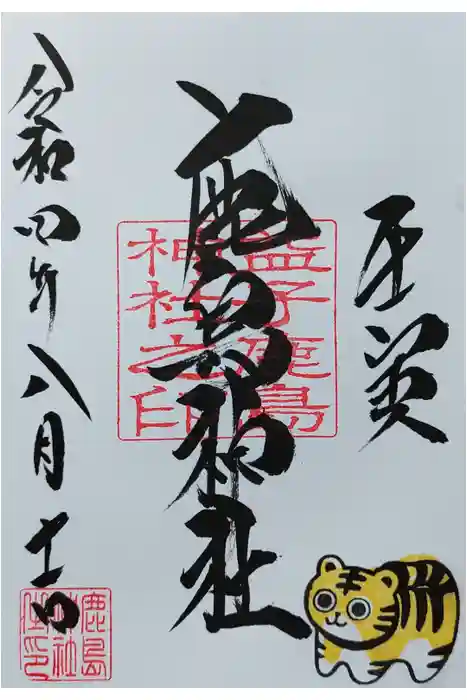 鹿島神社
益子鹿島
神社之印
令和四年八月十一日
鹿島
神社